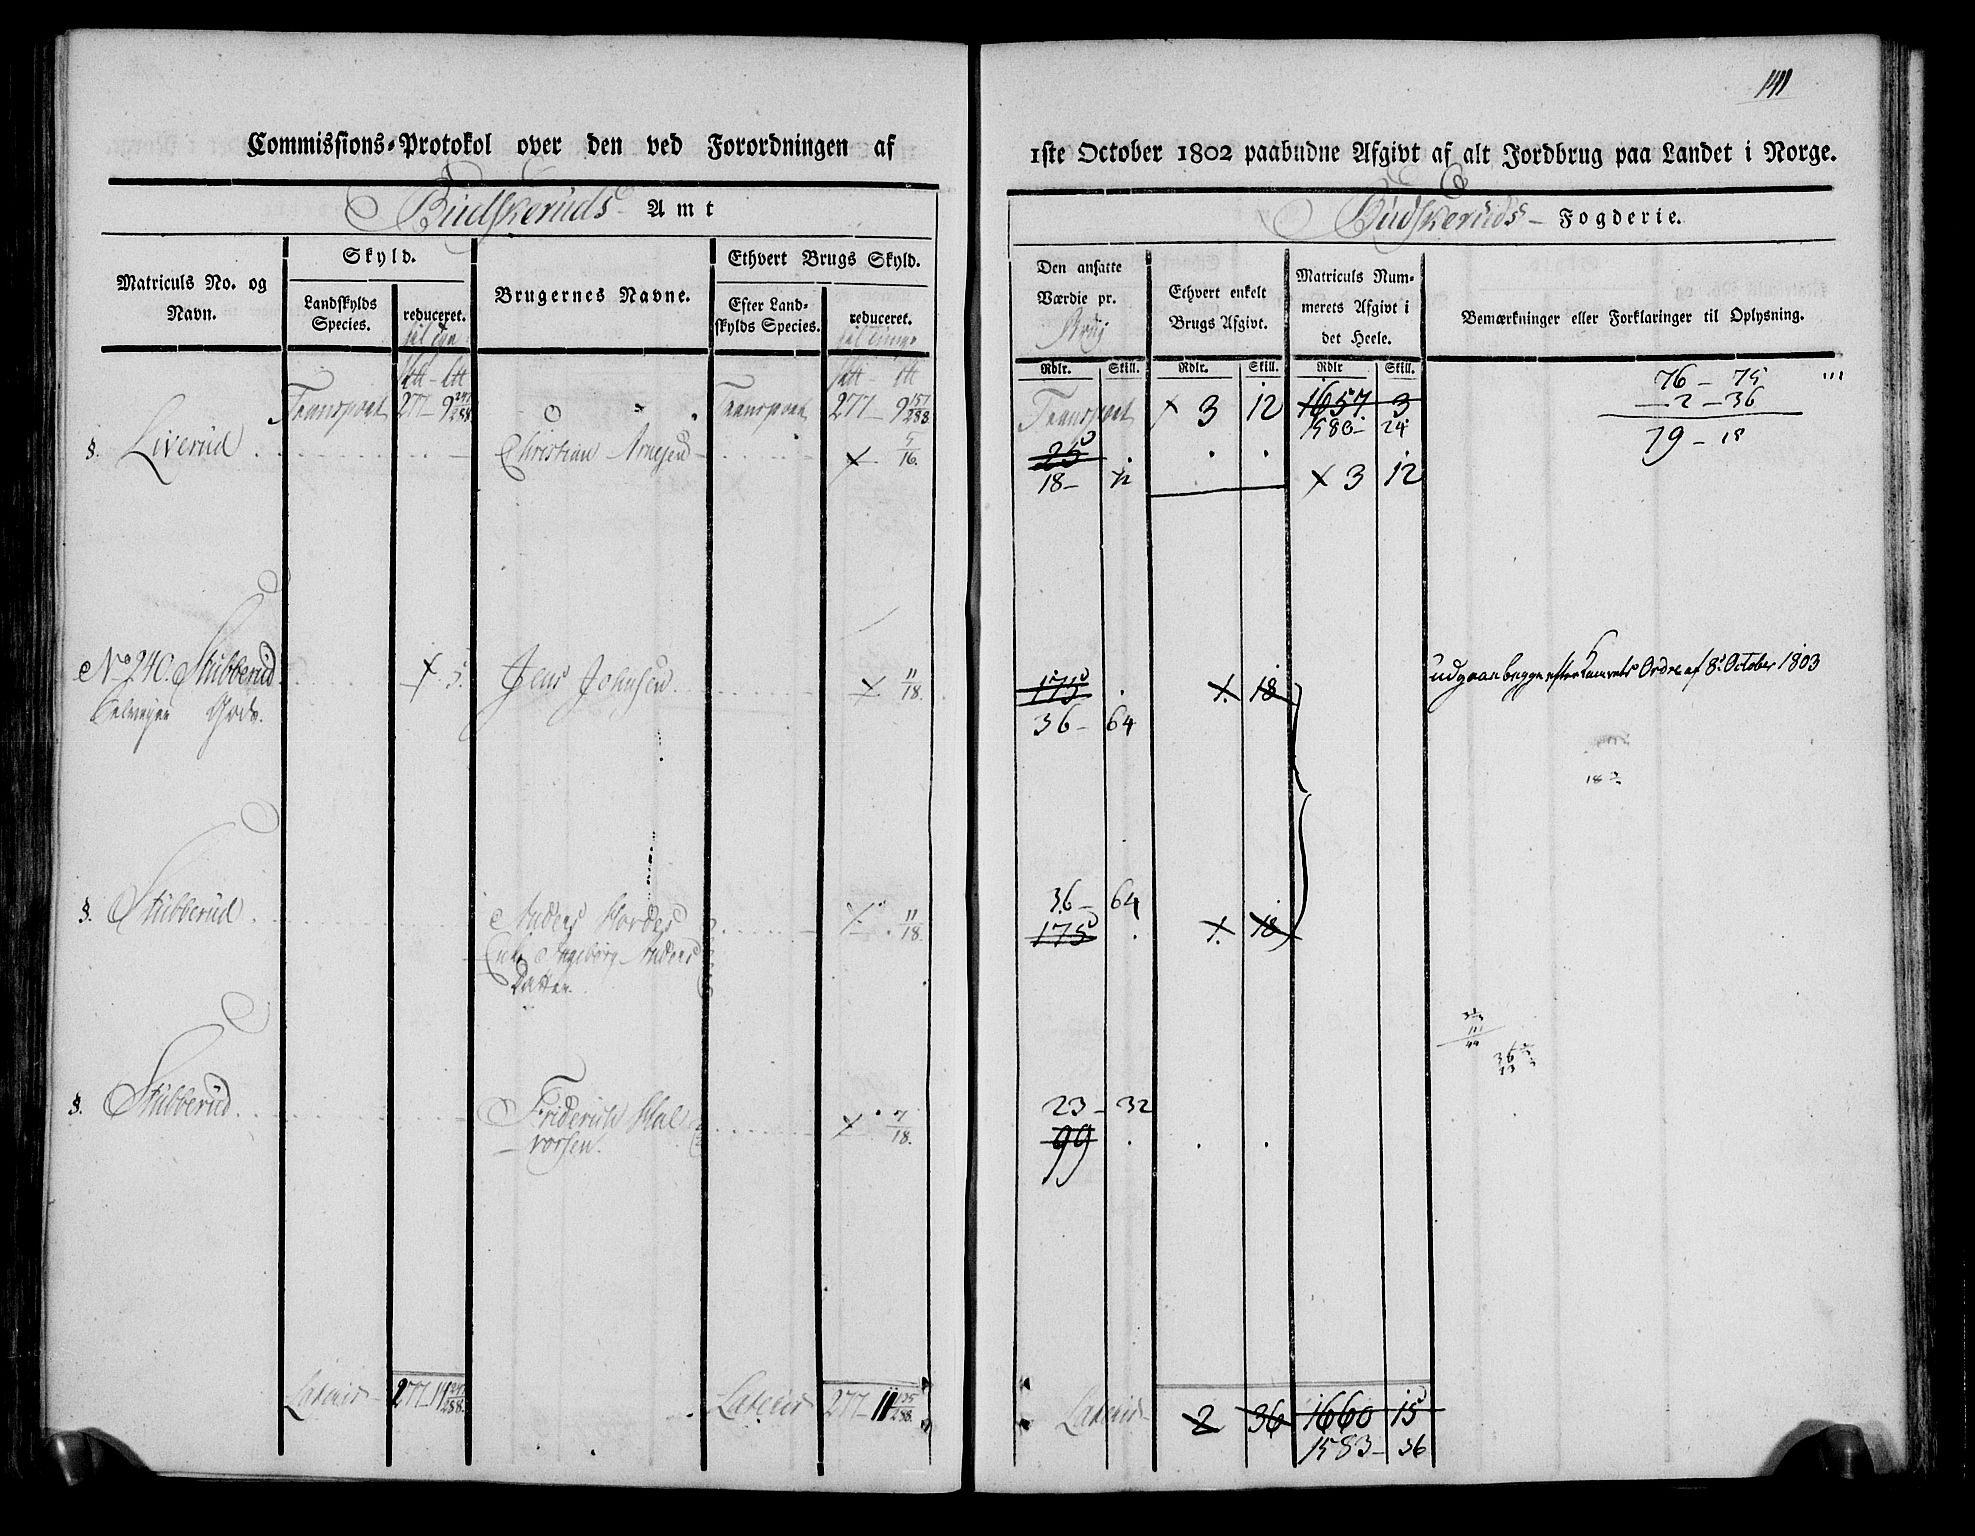 Commissions-Protokol over den ved Forordningen af
Budskeruds Amt
Matriculs No. og Navn.
Skyld.
Landskylds Species.
reduceret.
Brugernes Navne.
Ethvert Brugs Skyld.
Efter Landskylds Species.
reduceret.
Transport 277 - 9 - o " " Transport 277 - 9 157/288
§. Liverud Christian Arnesen x 5/16.
No 240. Stubberud x 5. Jens Johnsen x 11/18.
Gods.
§. Stubberud Anders x 11/18.
Ingeborg Anders
Datter.
§. Stubberud Friderich Hal x 7/18.
vorsen.
Lateris 277 - 11 Lateris 277 - 11 135/288.
141
1ste October 1802 paabudne Afgivt af alt Jordbrug paa Landet i Norge.
Budskeruds Fogderie.
Den ansatte Værdie pr. Brug
Ethvert enkelt Brugs Afgivt.
Matriculs Nummerets Afgivt i det Heele.
Bemærkninger eller Forklaringer til Oplysning.
Rdlr. Skill. Rdlr. Skill. Rdlr Skill.
Transport x 3 12 1657 3
1580 - 24
76 - 75
2 - 36
79 - 18
25 . . .
18 - 72 x 3 12
175 . x 18 udgaar begge efter Kamrets Ordre af 8 October 1803
36 - 64
36 - 64
175 . x 18
23 - 32
99 . . .
Lateris 2 36 1660 15
1583 - 36